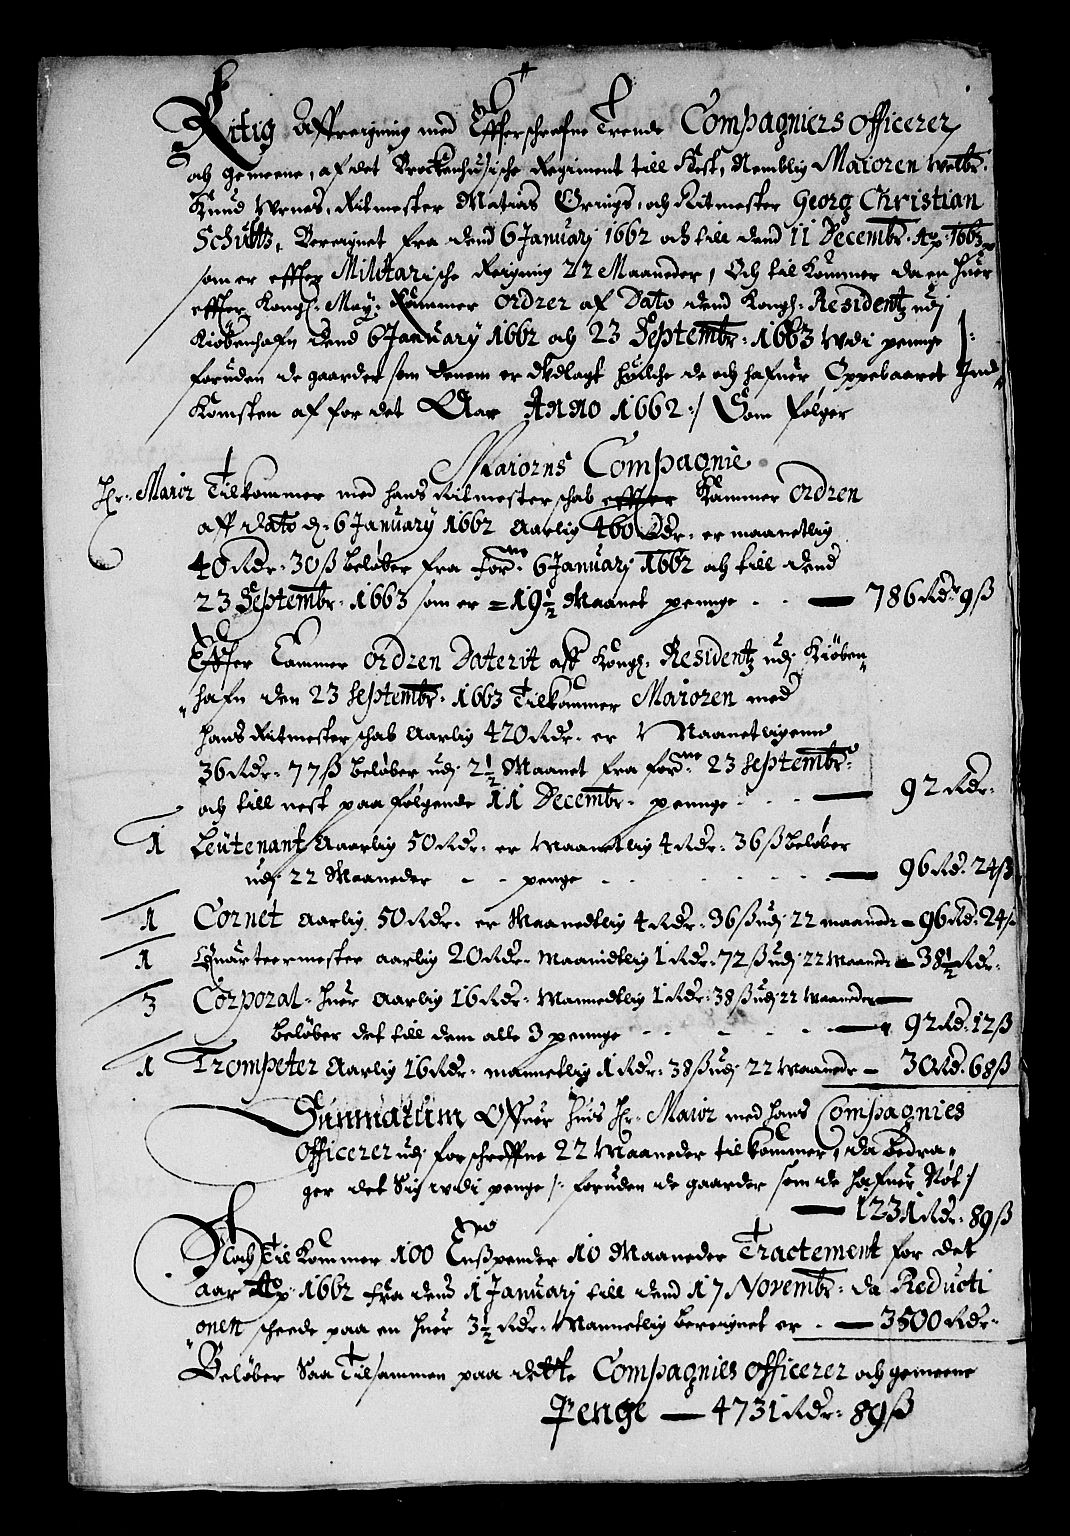 Rigtig Affreigning med Effterschrefne Trende Compagniers Officerer
och gemeene, af det Brockenhusische Regiment till Hest, Nemblig Maioren Welb:
Knud Urnes, Ritmester Matias Grings, och Ritmester Georg Christian
Schultz, Bereignet fra dend 6 January 1662 och till dend 11 Decembr. Ao. 1663
som er effter Militarische Reigning 22 Maaneder, Och til Kommer da en huer
effter Kongl: May: Kammer Ordrer af Dato dend Kongl: Residentz udj
Kiøbenhafn dend 6 January 1662 och 23 Septembr: 1663 Udi penge /:
foruden de gaarder som denem er udlagt huilche de och hafuer Oppebaaret Ind„
Komsten af for det Aar Anno 1662 :/ Som følger
Maiorns Compagnie
Hr: Maior Tilkommer med hans Ritmesterschab effter Kammer Ordren
aff Dato d: 6 January 1662 Aarlig 460 Rdr. er maanetlig
40 Rdr. 30 ß beløber fra forne 6 January 1662 och till dend
23 Septembr. 1663 som er = 19 1/2 Maanet penge - - — 786 Rdr 9 ß
Effter Cammer Ordren Daterit aff Kongl: Residentz udj Kiøben„
„hafn den 23 Septembr. 1663 Tilkommer Maioren med
hans Ritmesterschab Aarlig 420 Rdr. er Maanetligenn
36 Rdr. 77 ß beløber udj 2 1/2 Maanet fra forne 23 Septembr:
och till nest paafølgende 11 Decembr. penge - - - — 92 Rdr.
1 Leutenant Aaarlig 50 Rdr. er Maanetlig 4 Rdr. 36 ß beløber
udj 22 Maaneder - - penge - - - — 96 Rd. 24 ß
1 Cornet Aarlig 50 Rdr. er Maanedtlig 4 Rdr. 36 ß udj 22 maander — 96 Rd. 24 ß
1 Quarteermester aarlig 20 Rdr. Maanidtlig 1 Rdr. 72 ß udj 22 Maander — 38 1/2 Rdr.
3 Corporal. huer Aarlig 16 Rdr. Mannedtlig 1 Rdr. 38 ß udj 22 Maaneder —
beløber det till dem alle 3 pennge - - - — 92 Rd. 12 ß
1 Trompeter Aarlig 16 Rdr. mannetlig 1 Rdr. 38 ß udj 22 Maander — 30 Rd. 68 ß
Summarum Offuer huis Hr. Maior med hans Compagnies
Officerer udj forschreffne 22 Maaneder tilkommer, da bedra„
ger det Sig udi penge /: foruden de gaarder som de hafuer Nøt :/
— 1231 Rdr. 89 ß
Noch Til Kommer 100 Enspender 10 Maaneder Tractement for det
aar Ao. 1662 fra dend 1 January till dend 17 Novembr: da Reducti
„onen scheede paa en huer 3 1/2 Rdr. Mannetlig bereignet er . — 3500 Rdr.
Beløber Saa Tilsammen paa dette Compagnies Officerer och gemeene
Penge — 4731 Rdr. 89 ß